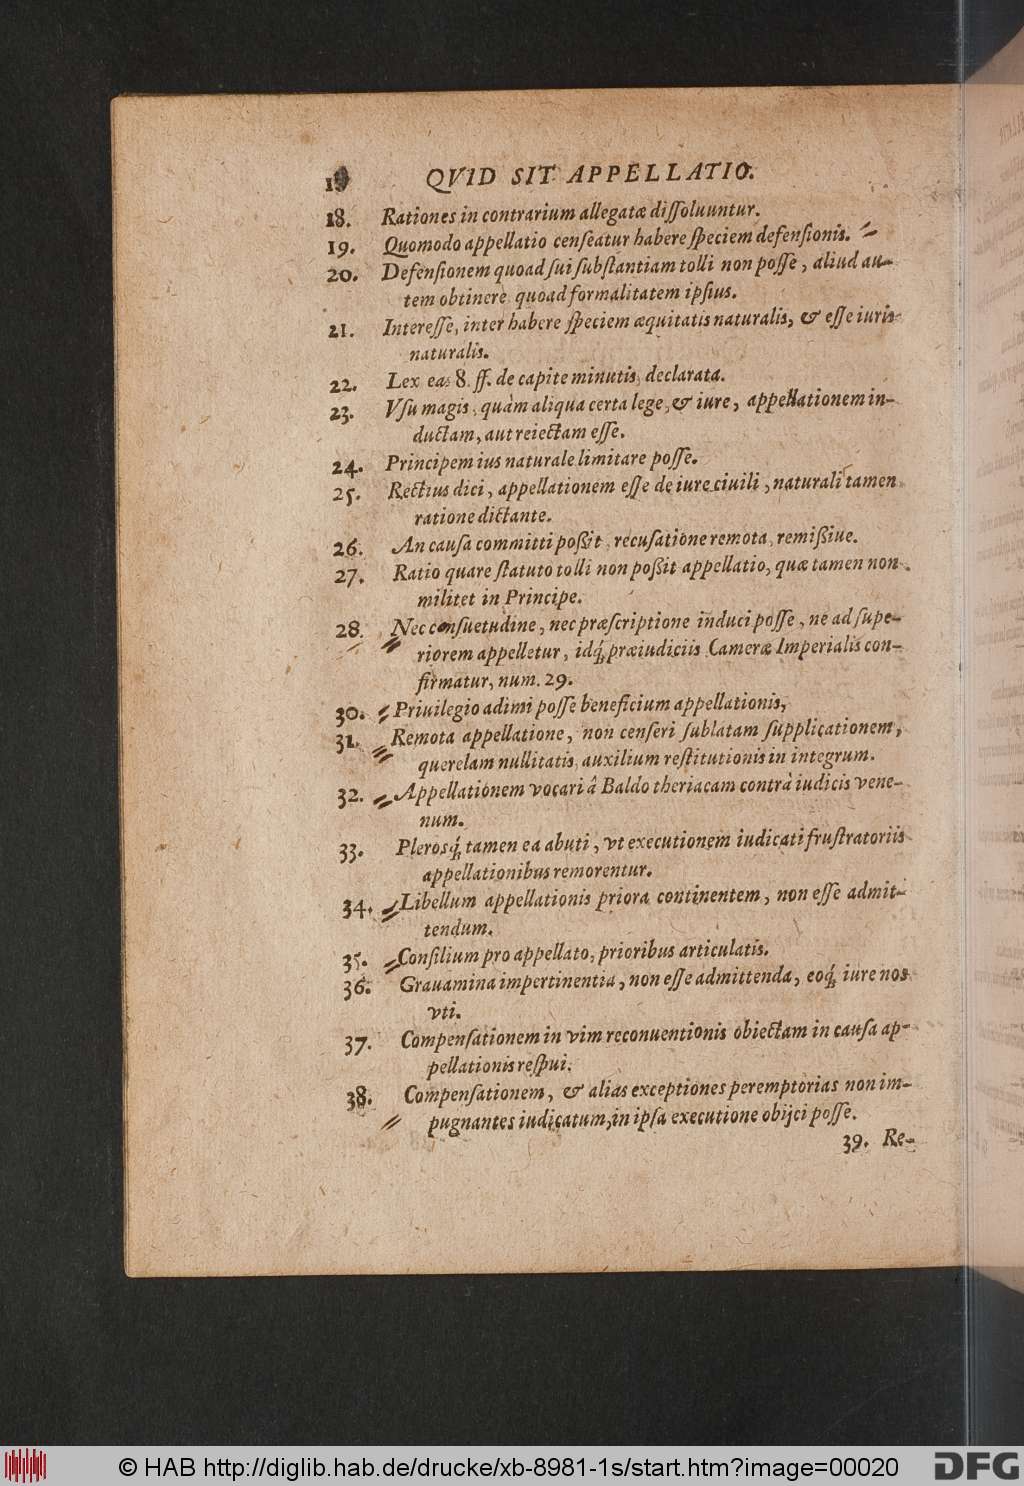 QVID SIT APPELLATIO.
18. Rationes in contrarium allegatæ diſſoluuntur.
19. Quomodo appellatio cenſeatur habere ſpeciem defenſionis.
20. Defenſionem quoad ſui ſubſtantiam tolli non poſſe, aliud au-
tem obtinere quoad formalitatem ipſius.
21. Intereſſe, inter habere ſpeciem æquitatis naturalis, & eſſe iuris
naturalis.
22. Lex ea: 8. ff. de capite minutis, declarata.
23. Vſu magis, quàm aliqua certa lege, & iure, appellationem in-
ductam, aut reiectam eſſe.
24. Principem ius naturale limitare poſſe.
25. Rectius dici, appellationem eſſe de iure ciuili, naturali tamen
ratione dictante.
26. An cauſa committi poßit, recuſatione remota, remißiue.
27. Ratio quare ſtatuto tolli non poßit appellatio, quæ tamen non
militet in Principe.
28. Nec conſuetudine, nec præſcriptione induci poſſe, ne ad ſupe-
riorem appelletur, idq́ præiudiciis Cameræ Imperialis con-
firmatur, num. 29.
30. Priuilegio adimi poſſe beneficium appellationis,
31. Remota appellatione, non cenſeri ſublatam ſupplicationem,
querelam nullitatis, auxilium reſtitutionis in integrum.
32. Appellationem vocari â Baldo theriacam contrà iudicis vene-
num.
33. Plerosq́ tamen ea abuti, vt executionem iudicati fruſtratoriis
appellationibus remorentur.
34. Libellum appellationis priora continentem, non eſſe admit-
tendum.
35. Conſilium pro appellato, prioribus articulatis.
36. Grauamina impertinentia, non eſſe admittenda, eoq́ iure nos
vti.
37. Compenſationem in vim reconuentionis obiectam in cauſa ap-
pellationis reſpui.
38. Compenſationem, & alias exceptiones peremptorias non im-
pugnantes iudicatum, in ipſa executione obijci poſſe.
39. Re-
© HAB http://diglib.hab.de/drucke/xb-8981-1s/start.htm?image=00020
DFG